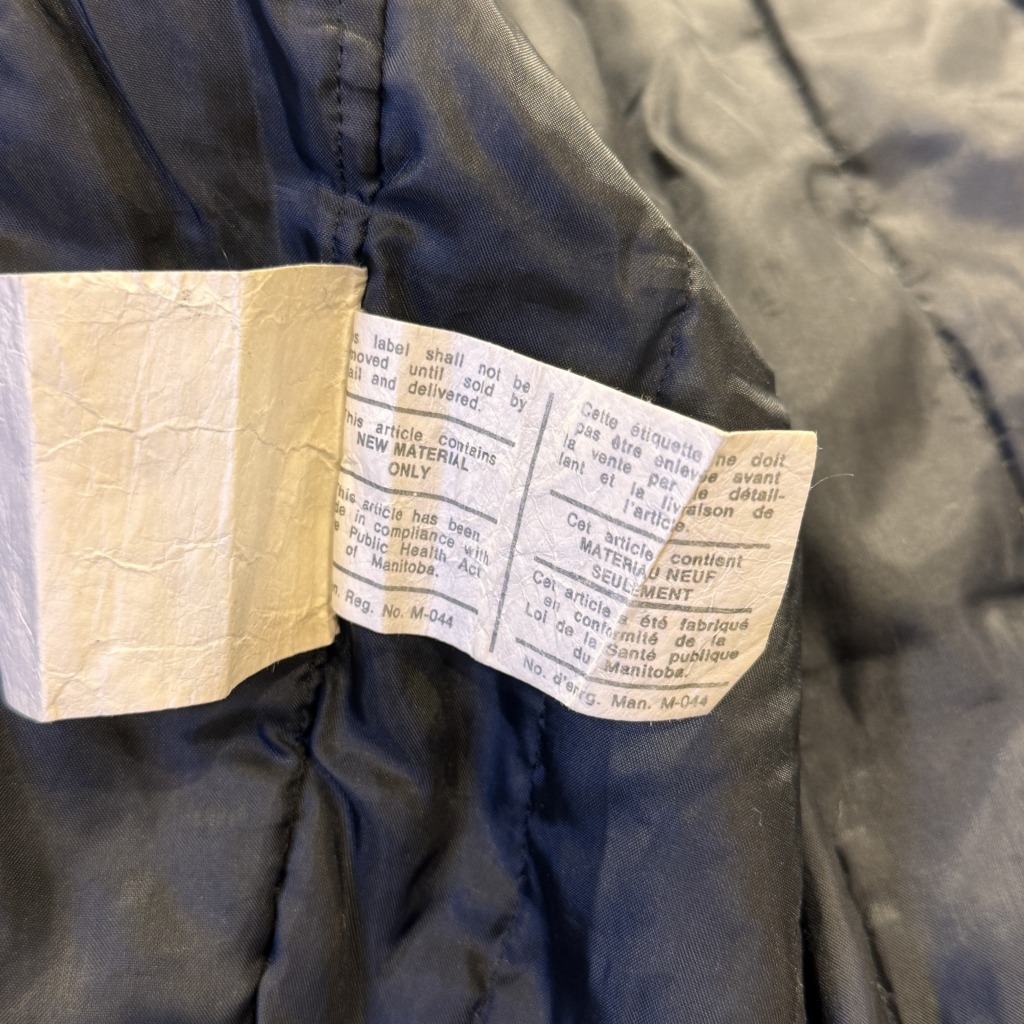 s label shall not be
moved until sold by
ail and delivered.
This article contains
NEW MATERIAL
ONLY
This article has been
de in compliance with
e Public Health Act
of Manitoba.
n. Reg. No. M-044
Cette étiquette ne doit
pas être enlev ée avant
la vente par le détail-
lant et la liv raison de
l'article.
Cet article contient
MATERIAU NEUF
SEULEMENT
Cet article a été fabriqué
en conformité de la
Loi de la Santé publique
du Manitoba.
No. d'enrg. Man. M-044